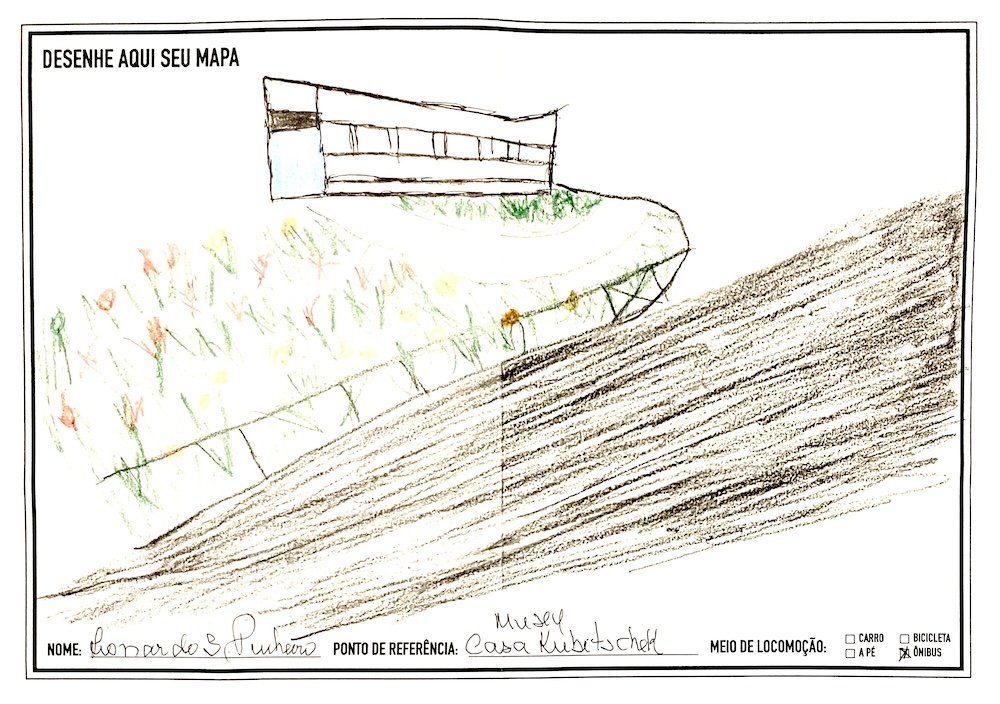 DESENHE AQUI SEU MAPA
Museu
NOME: Leonardo S Pinheiro PONTO DE REFERÊNCIA: Casa Kubitschek MEIO DE LOCOMOÇÃO: CARRO BICICLETA
A PÉ ÔNIBUS